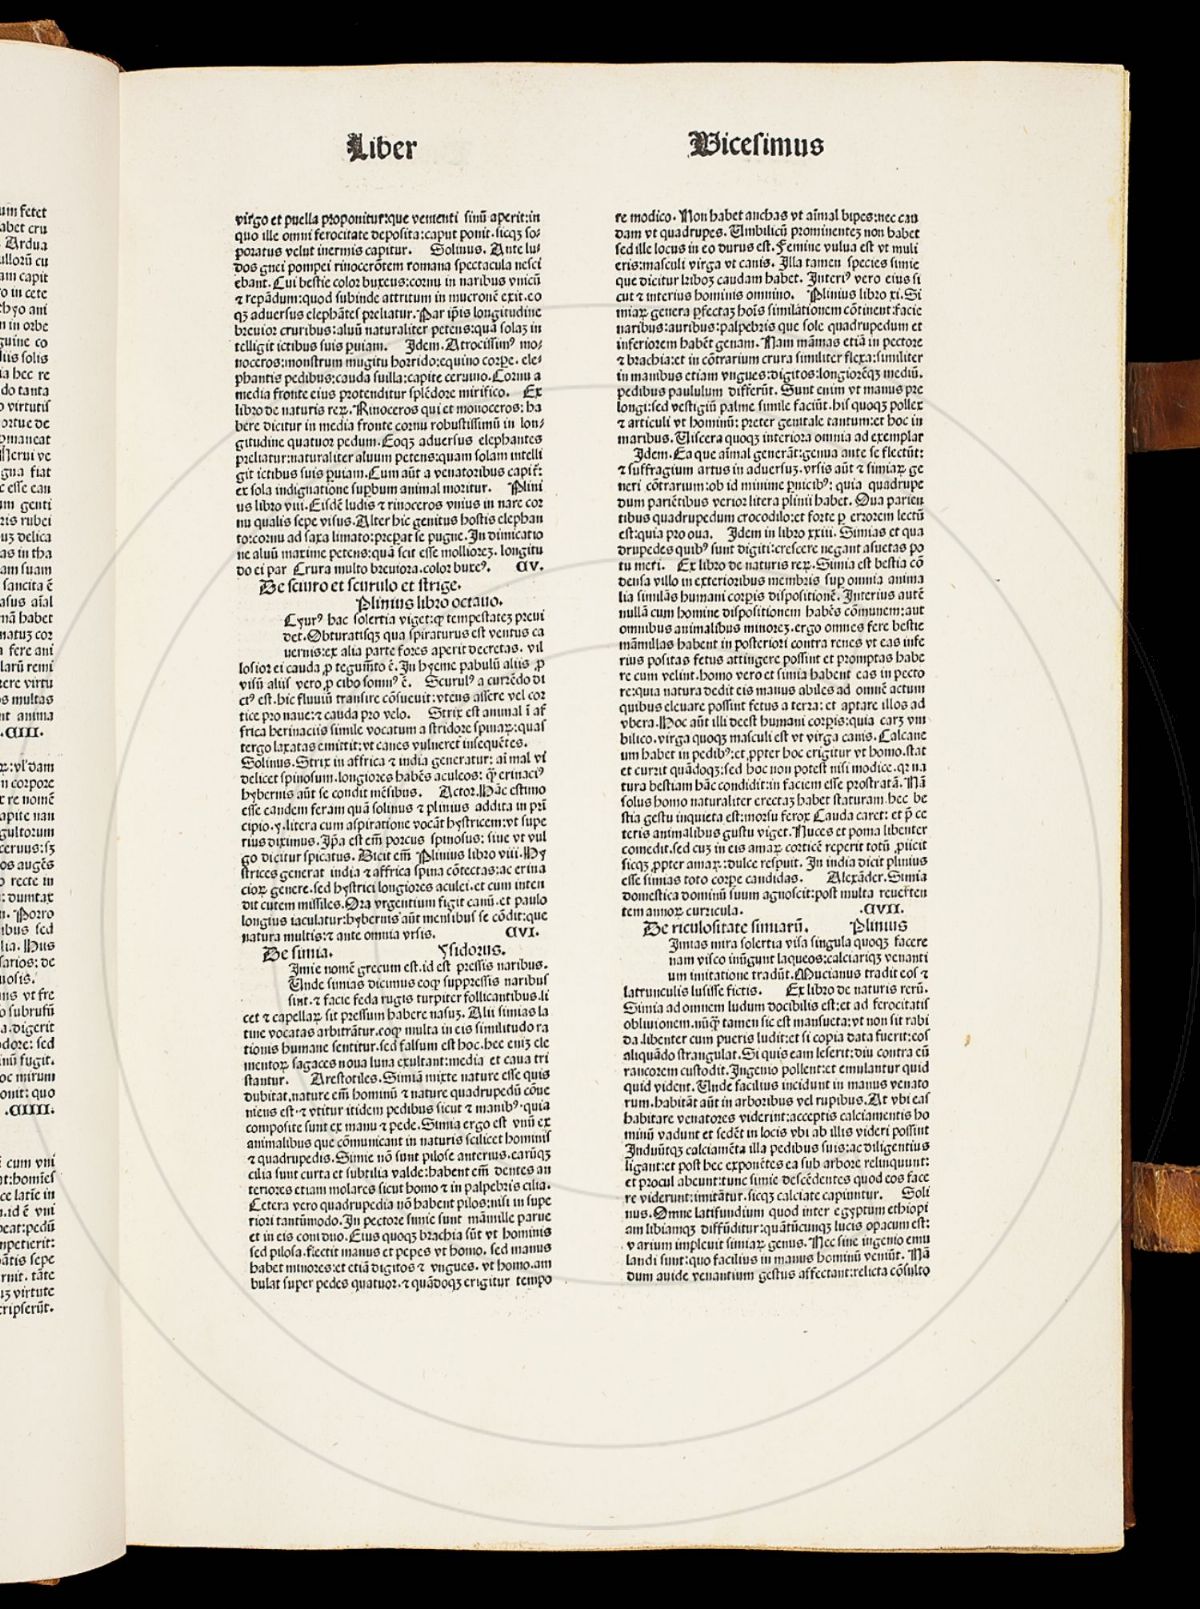 um fetet
abet cru
. Ardua
ullorū cu
am capit
o in cete
n in orbe
guine co
liis solis
ia hec re
do tanta
o virtutis
ortue de
pmaneat
Nerui ve
gna fiat
c esse can
um genti
ris rubei
uꝫ delica
as in tha
am suam
sancita ē
asus aīal
mā habet
natuꝫ cor
a fere ani
larū remi
nere virtu
s multas
nt anima
.CIII.
n corpore
r re nomē
apite nan
gultorum
ceruus:sꝫ
os augēs
o recte in
: dumtax
n. Porro
ibus sed
lia. Hus
sarios: de
uosis.
nis vt fre
o subrufū
a.digerit
dore: sed
inū fugit.
oc mirum
onit: quo
.CIIII.
ē cum vni
nt:homīes
ce latīe in
n.id ē vni
eat:pedū
mpetierit:
patis sepe
rnit. tāte
iꝫ virtute
cripserūt.
Liber
virgo et puella proponitur:que venienti sinū aperit:in
quo ille omni ferocitate deposita:caput ponit.sicqꝫ so-
poratus velut inermis capitur. Solinus. Ante lu-
dos gnei pompei rinocerōtem romana spectacula nesci
ebant. Cui bestie color buxeus:cornu in naribus vnicū
⁊ repādum:quod subinde attritum in mucronē exit.eo
qꝫ aduersus elephātes preliatur. Par ip̄is longitudine
breuior cruribus:aluū naturaliter petens:quā solaꝫ in
telligit ictibus suis puiam. Idem. Atrocissimꝰ mo-
noceros:monstrum mugitu horrido:equino corpe. ele-
phantis pedibus:cauda suilla:capite ceruino. Cornu a
media fronte eius protenditur splēdore mirifico. Ex
libro de naturis reꝝ. Rinoceros qui et monoceros: ha
bere dicitur in media fronte cornu robustissimū in lon-
gitudine quatuor pedum. Eoqꝫ aduersus elephantes
preliatur:naturaliter aluum petens:quam solam intelli
git ictibus suis puiam. Cum aūt a venatoribus capit̄:
ex sola indignatione supbum animal moritur. Plini
us libro viii. Eisdē ludis ⁊ rinoceros vnius in nare cor
nu qualis sepe visus. Alter hic genitus hostis elephan
to:cornu ad saxa limato:prepat se pugne. In dimicatio
ne aluū maxime petens:quā scit esse mollioreꝫ. longitu
do ei par Crura multo breuiora.color buxeꝰ. CV.
De sciuro et scurulo et strige.
Plinius libro octauo.
Cyurꝰ hac solertia viget:qꝫ tempestateꝫ preui
det. Obturatisqꝫ qua spiraturus est ventus ca
uernis:ex alia parte fores aperit decretas. vil
losior ei cauda ꝓ tegumto ē. In hyeme pabulū aliis ꝓ
visū aliis vero ꝓ cibo somnꝰ ē. Scurulꝰ a currēdo di
ctꝰ est.hic fluuiū transire cōsueuit:vtens assere vel cor
tice pro naue:⁊ cauda pro velo. Strix est animal ī af
frica herinaciis simile vocatum a stridore spinaꝝ:quas
tergo laxatas emittit:vt canes vulneret insequētes.
Solinus. Strix in affrica ⁊ india generatur: aīmal vi
delicet spinosum.longiores habēs aculeos: ꝙ erinaciꝰ
hybernis aūt se condit mēsibus. Actor. Hāc estimo
esse eandem feram quā solinus ⁊ plinius addita in prī
cipio.y.litera cum aspiratione vocāt hystricem:vt supe
rius diximus. Ip̄a est em̄ porcus spinosus: siue vt vul
go dicitur spicatus. Dicit em̄ Plinius libro viii. Hy
strices generat india ⁊ affrica spina cōtectas:ac erina
cioꝝ genere.sed hystrici longiores aculei.et cum inten
dit cutem missiles. Ora vrgentium figit canū.et paulo
longius iaculatur:hybernis aūt mensibus se cōdit:que
natura multis:⁊ ante omnia vrsis. CVI.
De simia. Ysidorus.
Imie nomē grecum est.id est pressis naribus.
Unde simias dicimus eoqꝫ suppressis naribus
sint.⁊ facie feda rugis turpiter follicantibus.li
cet ⁊ capellaꝝ sit pressum habere nasuꝫ. Alii simias la
tine vocatas arbitrātur.eoqꝫ multa in eis similitudo ra
tionis humane sentitur.sed falsum est hoc.hec eniꝫ ele
mentoꝝ sagaces noua luna exultant:media et caua tri
stantur. Arestotiles. Simiā mixte nature esse quis
dubitat.nature em̄ hominū ⁊ nature quadrupedū cōue
niens est.⁊ vtitur itidem pedibus sicut ⁊ manibꝰ.quia
composite sunt ex manu ⁊ pede. Simia ergo est vnū ex
animalibus que cōmunicant in naturis scilicet hominis
⁊ quadrupedis. Simie nō sunt pilose anterius.earūqꝫ
cilia sunt curta et subtilia valde:habent em̄ dentes an
teriores etiam molares sicut homo ⁊ in palpebris cilia.
Cetera vero quadrupedia nō habent pilos:nisi in supe
riori tantūmodo. In pectore simie sunt māmille parue
et in eis com duo. Eius quoqꝫ brachia sūt vt hominis
sed pilosa.flectit manus et pepes vt homo. sed manus
habet minores:et etiā digitos ⁊ vngues. vt homo.am
bulat super pedes quatuor.⁊ quādoqꝫ erigitur tempo
Vicesimus
re modico. Non habet anchas vt aīmal bipes:nec cau
dam vt quadrupes. Umbilicū prominenteꝫ non habet
sed ille locus in eo durus est. Femine vulua est vt muli
eris:masculi virga vt canis. Illa tamen species simie
que dicitur kiboꝫ caudam habet. Interiꝰ vero eius si
cut ⁊ interius hominis omnino. Plinius libro xi. Si
miaꝝ genera pfectaꝫ hoīs similationem cōtinent:facie
naribus:auribus:palpebris que sole quadrupedum et
inferiorem habēt genam. Nam māmas etiā in pectore
⁊ brachia:et in cōtrarium crura similiter flexa:similiter
in manibus etiam vngues:digitos:longiorēqꝫ mediū.
pedibus paululum differūt. Sunt enim vt manus pre
longi:sed vestigiū palme simile faciūt.his quoqꝫ pollex
⁊ articuli vt hominū: preter genitale tantum:et hoc in
maribus. Viscera quoqꝫ interiora omnia ad exemplar
Idem. Ea que aīmal generāt:genua ante se flectūt:
⁊ suffragium artus in aduersuꝫ.vrsis aūt ⁊ simiaꝝ ge
neri cōtrarium:ob id minime pnicibꝰ: quia quadrupe
dum pariētibus verior litera plinii habet. Oua parien
tibus quadrupedum crocodilo:et forte ꝑ errorem lectū
est:quia pro oua. Idem in libro xxiii. Simias et qua
drupedes quibꝰ sunt digiti:crescere negant asuetas po
tu meri. Ex libro de naturis reꝝ. Simia est bestia cō
densa villo in exterioribus membris sup omnia anima
lia similās humani corpis dispositionē. Interius autē
nullā cum homine dispositionem habēs cōmunem:aut
omnibus animalibus minoreꝫ.ergo omnes fere bestie
māmillas habent in posteriori contra renes vt eas infe
rius positas fetus attingere possint et promptas habe
re cum velint.homo vero et simia habent eas in pecto
re:quia natura dedit eis manus abiles ad omnē actum
quibus eleuare possint fetus a terra: et aptare illos ad
vbera. Hoc aūt illi deest humani corpis:quia careꝫ vm
bilico.virga quoqꝫ masculi est vt virga canis. Calcane
um habet in pedibꝰ:et ꝓpter hoc erigitur vt homo.stat
et currit quādoqꝫ:sed hoc non potest nisi modice.qr na
tura bestiam hāc condidit:in faciem esse prostratā. Nā
solus homo naturaliter erectaꝫ habet staturam.hec be
stia gestu inquieta est:morsu ferox Cauda caret: et p̄ ce
teris animalibus gustu viget. Nuces et poma libenter
comedit.sed cuꝫ in eis amaꝝ corticē reperit totū ꝓiicit
sicqꝫ ꝓpter amaꝝ:dulce respuit. In india dicit plinius
esse simias toto corpe candidas. Alexāder. Simia
domestica dominū suum agnoscit:post multa reuerten
tem annoꝝ curricula. .CVII.
De ridiculositate simiarū. Plinius
Imias mira solertia visa singula quoqꝫ facere
nam visco inūgunt laqueos:calciariqꝫ venanti
um imitatione tradūt. Mucianus tradit eos ⁊
latrunculis lusisse fictis. Ex libro de naturis rerū.
Simia ad omnem ludum docibilis est:et ad ferocitatis
obliuionem.nūqꝫ tamen sic est mansueta:vt non sit rabi
da.libenter cum pueris ludit:et si copia data fuerit:eos
aliquādo strangulat. Si quis eam leserit:diu contra eū
rancorem custodit. Ingenio pollent:et emulantur quid
quid vident. Unde facilius incidunt in manus venato
rum.habitāt aūt in arboribus vel rupibus. At vbi eas
habitare venatores viderint:acceptis calciamentis ho
minū vadunt et sedēt in locis vbi ab illis videri possint
Induūtqꝫ calciamēta illa pedibus suis:ac diligentius
ligant:et post hec exponētes ea sub arbore relinquunt:
et procul abeunt:tunc simie descēdentes quod eos face
re viderunt:imitātur.sicqꝫ calciate capiuntur. Soli
nus. Omne latifundium quod inter egyptum ethiopi
am libiamqꝫ diffūditur:quātūcunqꝫ lucis opacum est:
varium impleuit simiaꝝ genus. Nec sine ingenio emu
landi sunt:quo facilius in manus hominū veniūt. Nā
dum auide venantium gestus affectant:relicta cōsulto